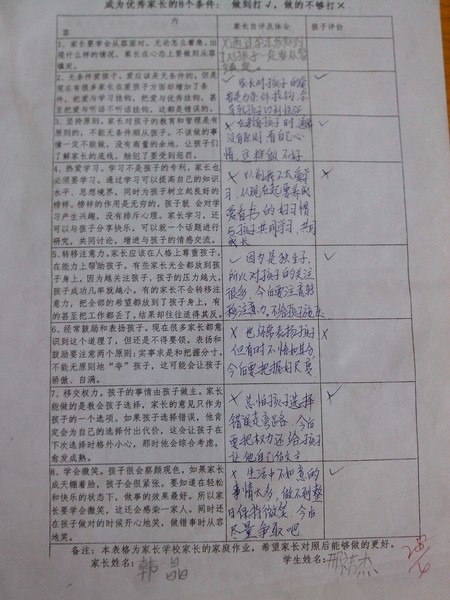 成为优秀家长的8个条件： 做到打√，做的不够打×
内容
家长自评及体会
孩子评价
1、家长要学会从容面对。无论怎么着急、出现什么样的情况、家长在心态上要做到从容镇定。
2、无条件爱孩子。爱应该是无条件的，但是现在有很多家长在爱孩子方面却增加了条件，把爱与学习挂钩，把爱与优秀挂钩，甚至把爱与听话不听话挂钩，这都是错误的。
√ 家长对孩子的爱
√
3、坚持原则。家长对孩子的教育和管理是有原则的，不能无条件顺从孩子。不该做的事情一定不能做，没有商量的余地，让孩子们了解家长的底线，触犯了要受到惩罚。
没有原则 看自己心
情，这样做不好
√
4、热爱学习。学习不是孩子的专利，家长也必须要学习。通过学习可以提高自己的知识水平、思想境界，同时为孩子树立起良好的榜样。榜样的作用是无穷的，孩子就 会对学习产生兴趣，没有排斥心理。家长学习，还可以与孩子分享快乐，可以就一个话题进行研究，共同讨论，增进与孩子的情感交流。
× 以前我不太爱学
习，从现在起要养成
爱看书的好习惯
与孩子共同学习，共同
成长
×
5、转移注意力。家长应该在人格上尊重孩子，在能力上帮助孩子。有些家长光全都放到孩子身上，因为越关注孩子，孩子的压力越大，孩子成功几率就越小。有的家长不会转移注意力，把全部的希望都放到了孩子身上，有的甚至把工作都丢了，结果却往往适得其反。
√ 因为是独生子，
所以对孩子的关注
很多，今后要注意转
移注意力，不给孩子施压
√
6、经常鼓励和表扬孩子。现在很多家长都意识到这个道理了，但还是不得要领。表扬和鼓励要注意两个原则：实事求是和把握分寸。不能无原则地“夸”孩子，这可能会让孩子骄傲、自满。
× 也经常表扬孩子
今后要把握好尺度
×
7、移交权力。孩子的事情由孩子做主。家长能做的是教会孩子选择，家长的意见只作为孩子的一个选项，如果孩子选择错误，他肯定会为自己的选择付出代价，这会让孩子在下次选择时格外小心，那时他会综合考虑，愈发成熟。
× 总怕孩子选择
错误走弯路，今后
要把权力还给孩子
让他自己做主
√
8、学会微笑。孩子很会察颜观色，如果家长成天绷着脸，孩子会很紧张。要知道在轻松和快乐的状态下，做事的效果最好。所以家长要学会微笑，这还会感染一家人。同时还在孩子做对的时候开心地笑，做错事时从容地笑。
× 生活中不如意的
事情太多，做不到整
日保持微笑 今后
尽量争取吧
√
备注：本表格为家长学校家长的家庭作业，希望家长对照后能够做的更好。
家长姓名：韩晶
学生姓名：